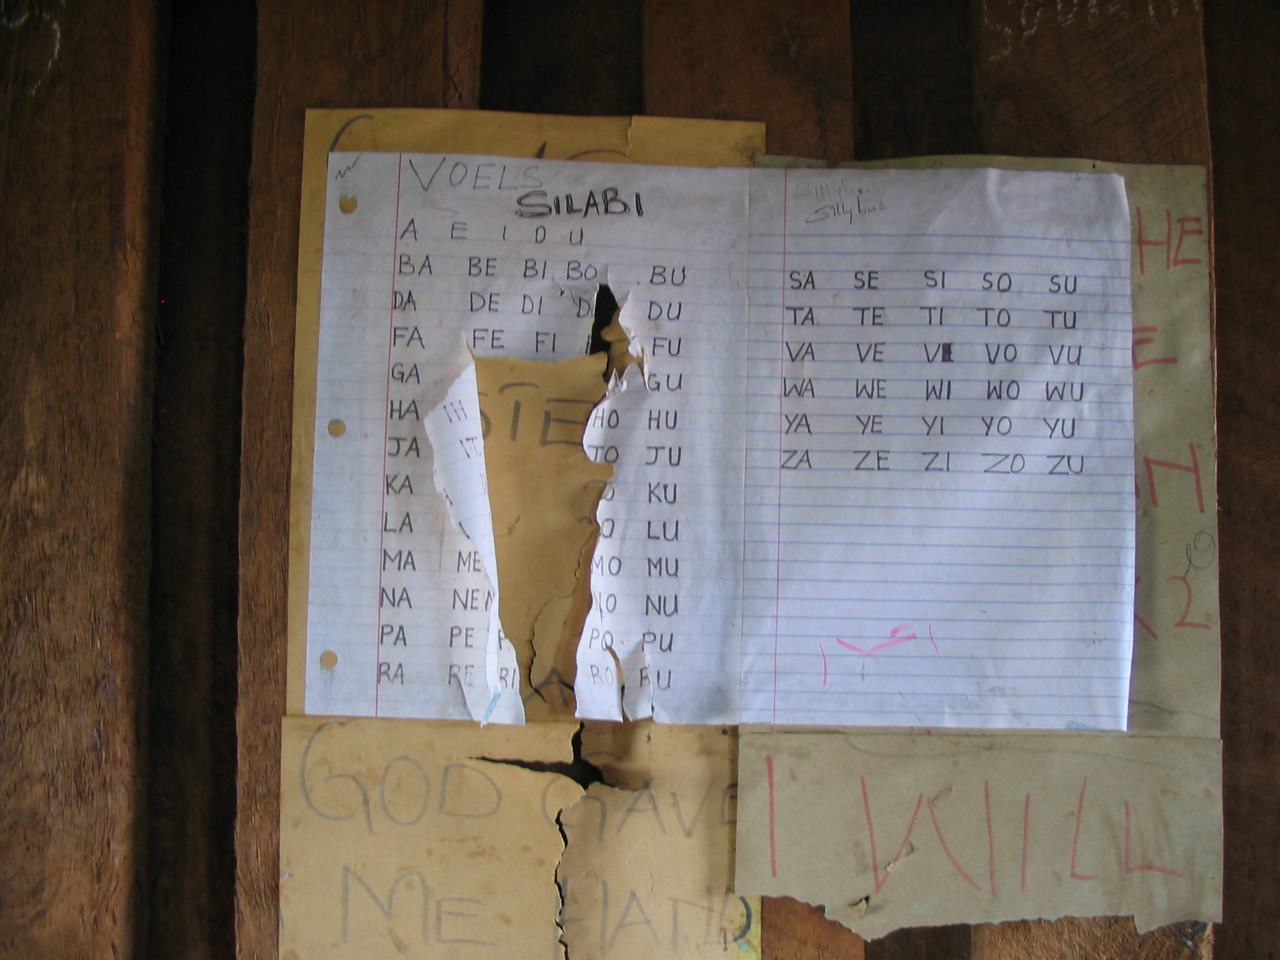 VOELS
SILABI
A E I O U
BA BE BI BO BU
DA DE DI DU
FA FE FI FU
GA GU
HA HO HU
JA JO JU
KA KU
LA LU
MA ME MO MU
NA NE NO NU
PA PE PO PU
RA RE RI RO RU
Sillybus
Sillybus
SA SE SI SO SU
TA TE TI TO TU
VA VE VI VO VU
WA WE WI WO WU
YA YE YI YO YU
ZA ZE ZI ZO ZU
HE
E
N
2
GOD GAVE
ME HAND
I WILL